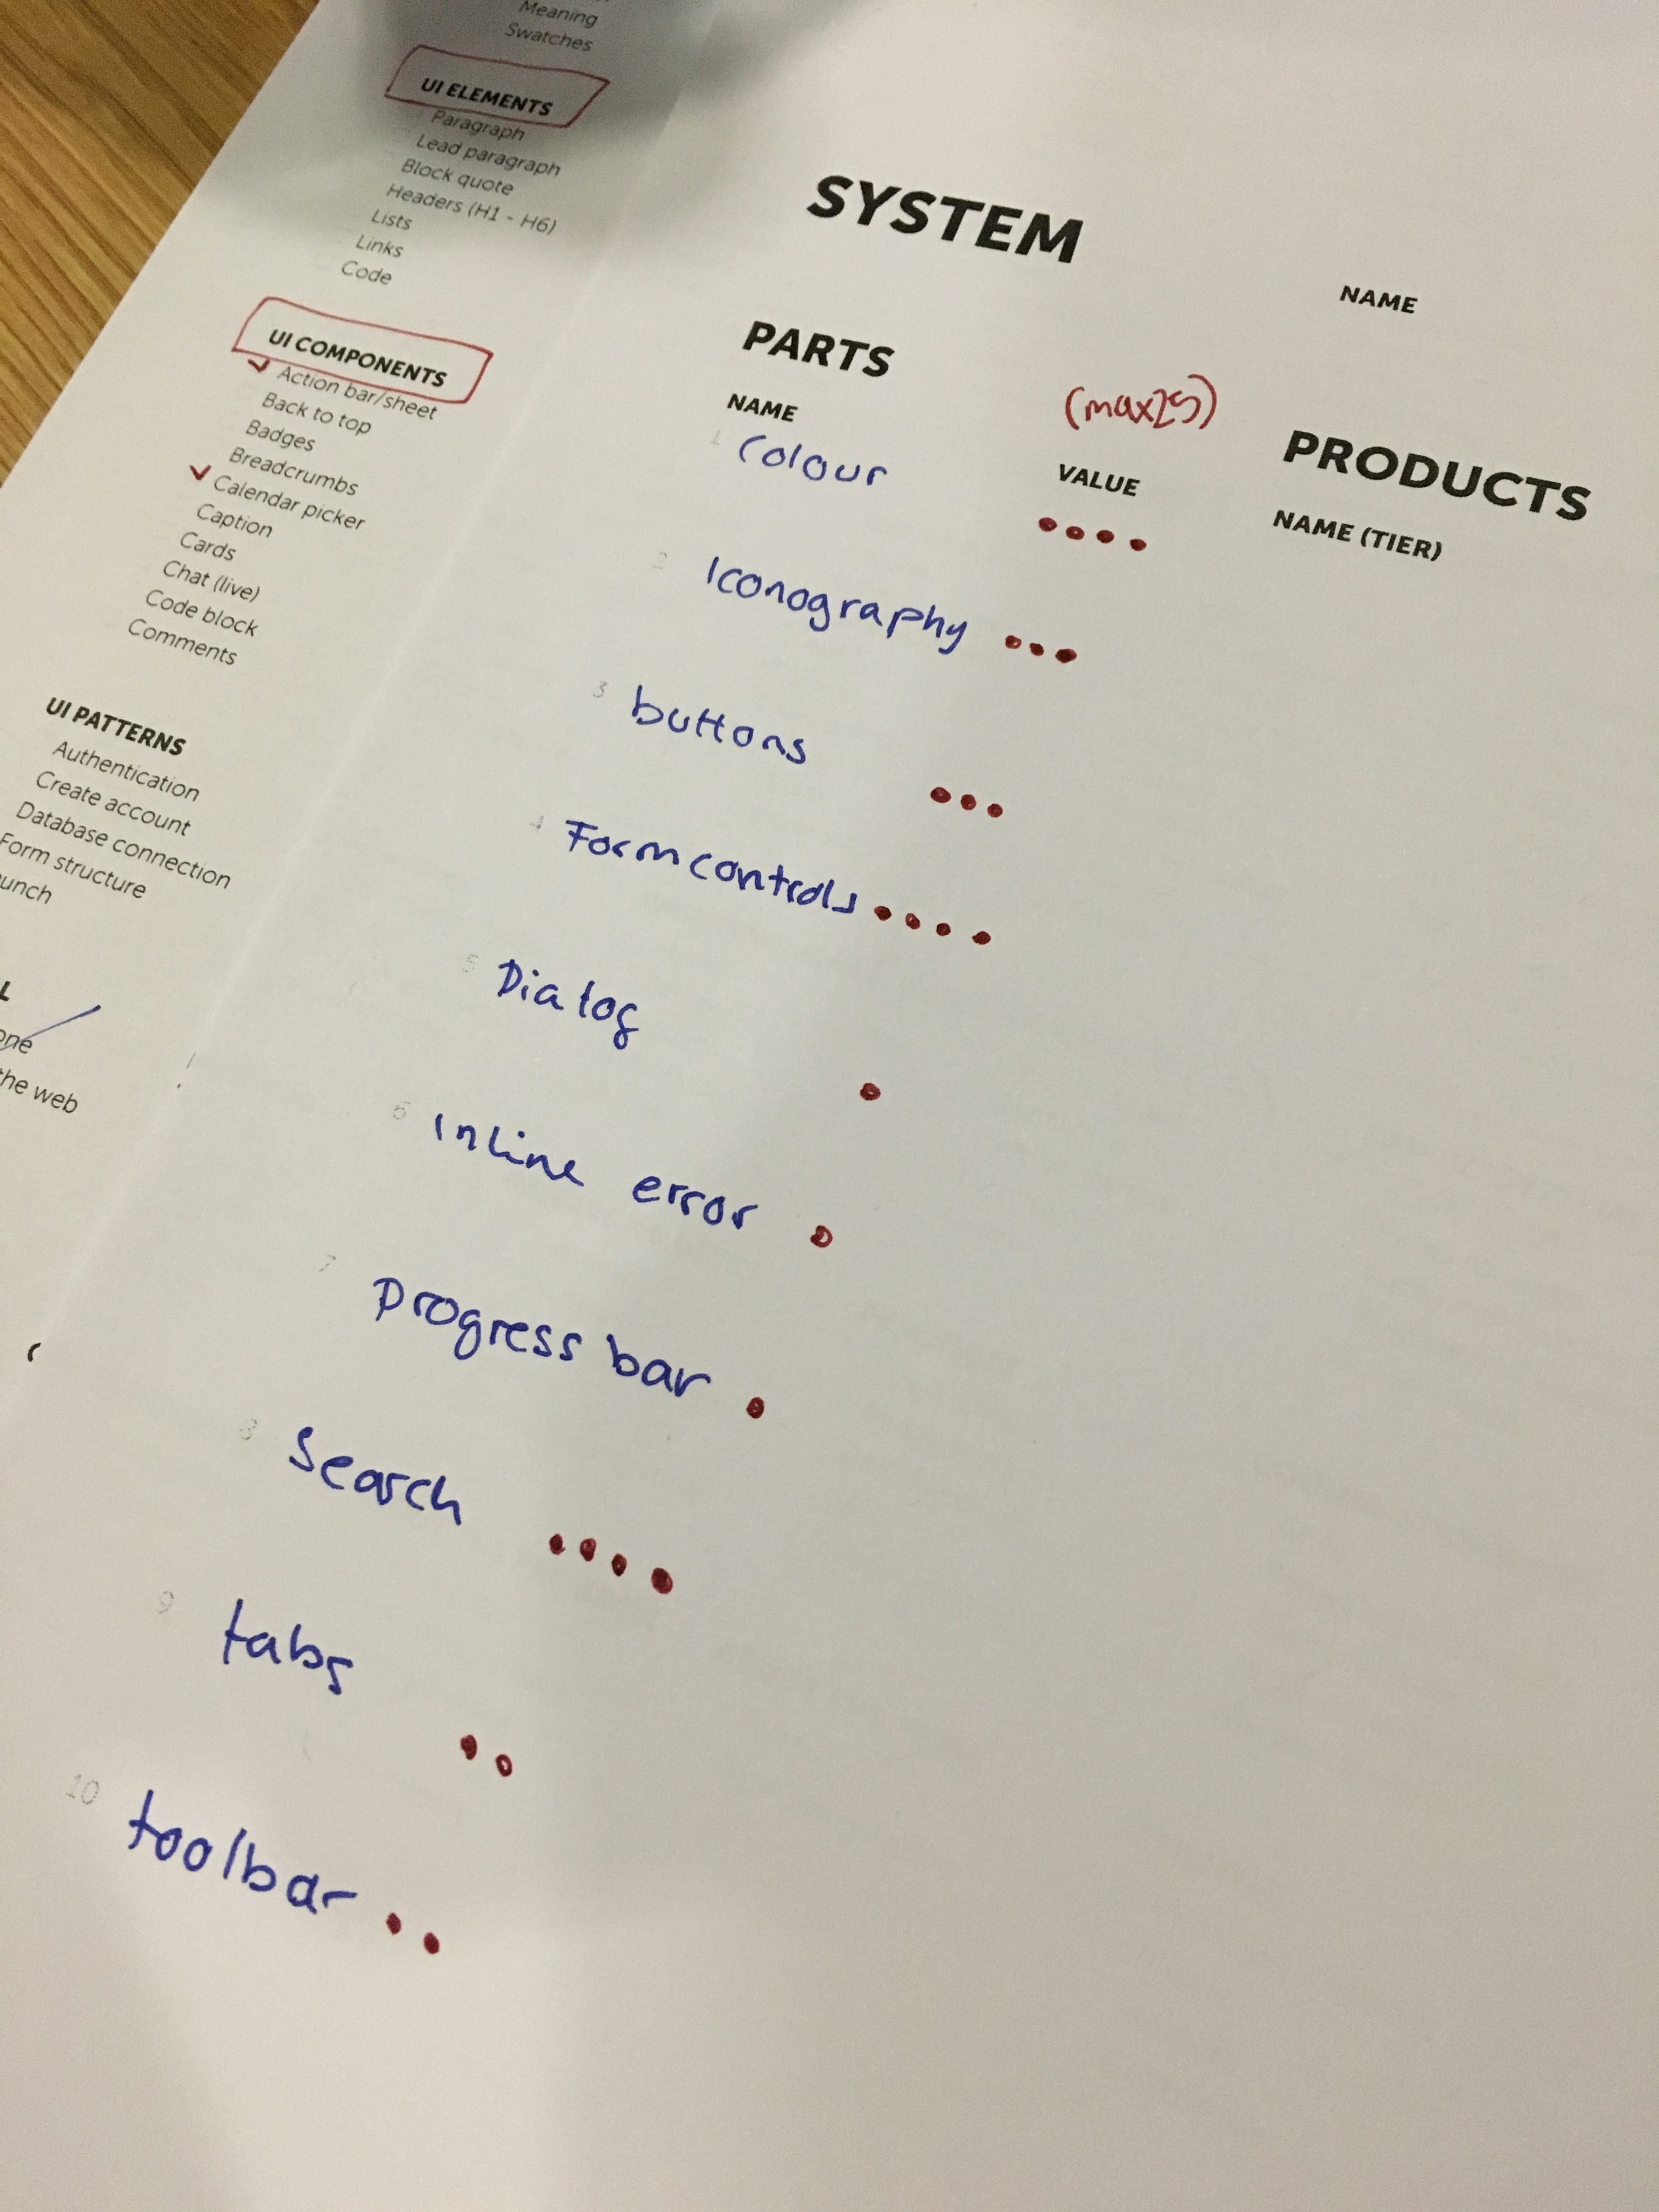 Meaning
Swatches
UI ELEMENTS
Paragraph
Lead paragraph
Block quote
Headers (H1 - H6)
Lists
Links
Code
UI COMPONENTS
Action bar/sheet
Back to top
Badges
Breadcrumbs
Calendar picker
Caption
Cards
Chat (live)
Code block
Comments
UI PATTERNS
Authentication
Create account
Database connection
Form structure
unch
L
one
the web
SYSTEM
NAME
PARTS
(max25)
PRODUCTS
NAME
VALUE
NAME (TIER)
1 Colour
2 Iconography
3 buttons
4 Form controls
5 Dialog
6 Inline error
7 Progress bar
8 Search
9 tabs
10 toolbar